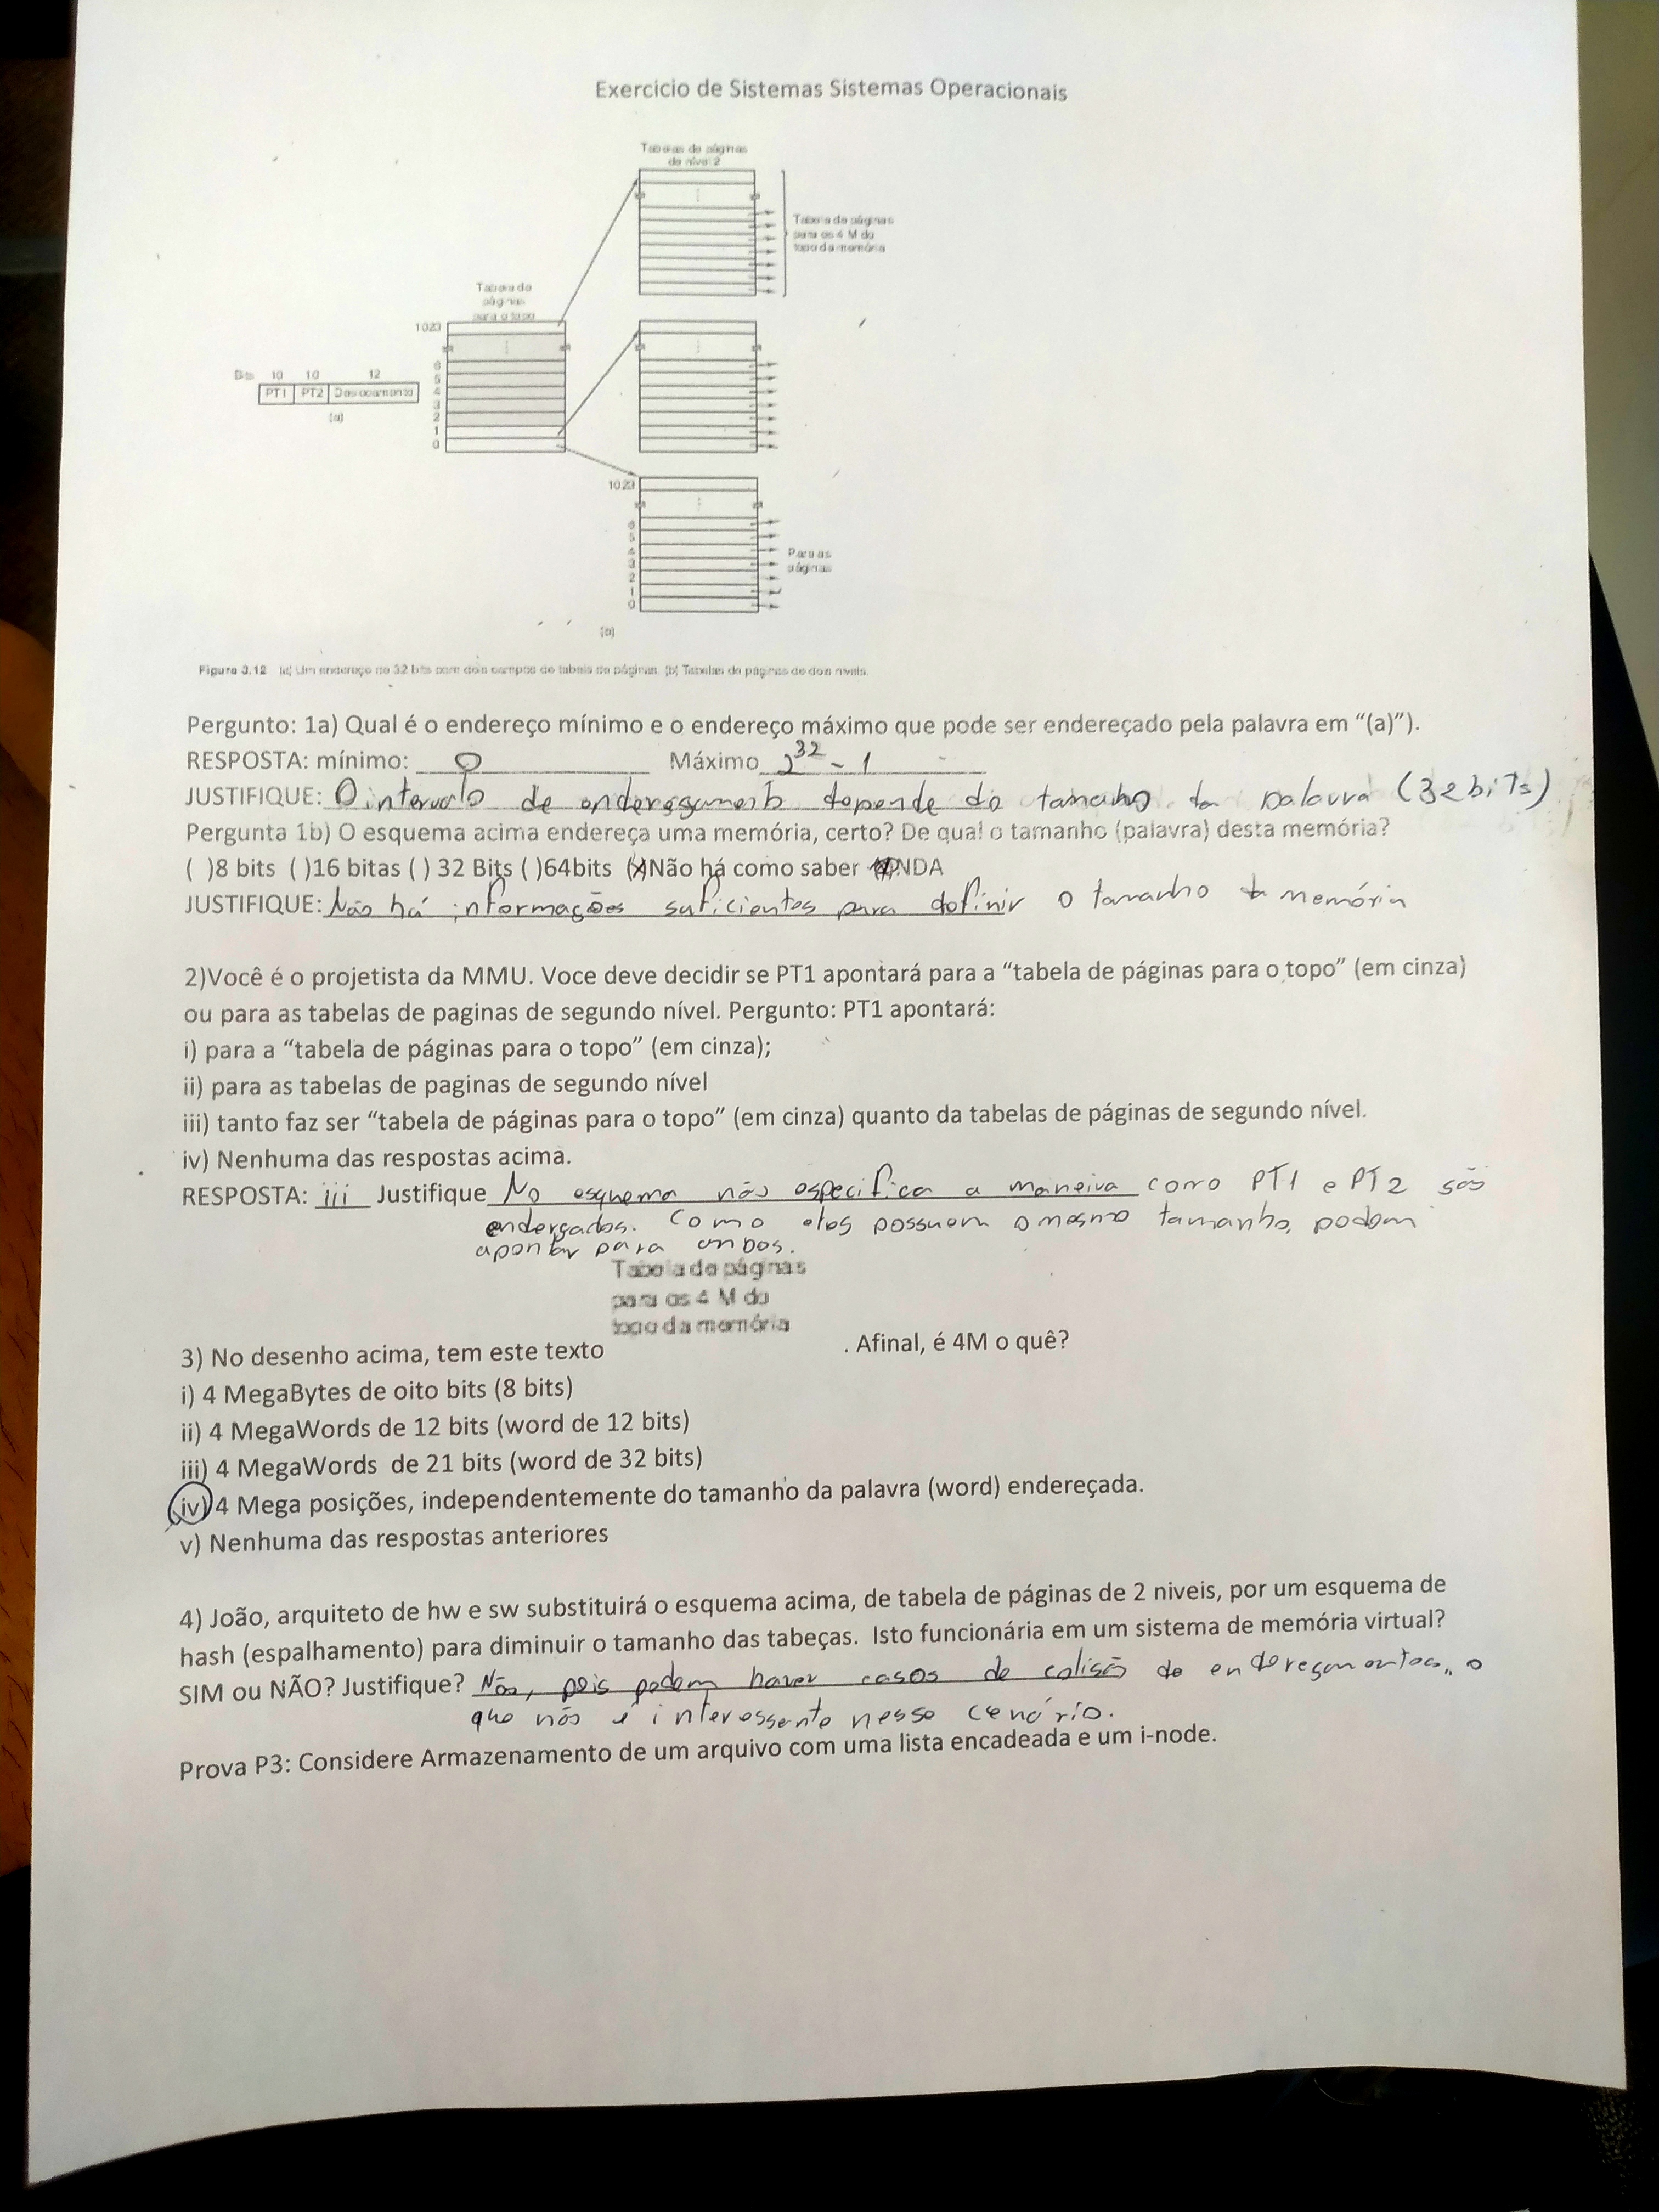 Exercicio de Sistemas Sistemas Operacionais
Tabelas de páginas
de nível 2
Tabela de páginas
para os 4 M do
topo da memória
Tabela de
páginas
para o topo
1023
6
5
4
3
2
1
0
Bits 10 10 12
PT1 PT2 Deslocamento
(a)
1023
6
5
4
3
2
1
0
Para as
páginas
(b)
Figura 3.12 (a) Um endereço de 32 bits com dois campos de tabela de páginas. (b) Tabelas de páginas de dois níveis.
Pergunto: 1a) Qual é o endereço mínimo e o endereço máximo que pode ser endereçado pela palavra em “(a)”).
RESPOSTA: mínimo: 0 Máximo 2^32 - 1
JUSTIFIQUE: O intervalo de endereçamento depende do tamanho da palavra (32 bits)
Pergunta 1b) O esquema acima endereça uma memória, certo? De qual o tamanho (palavra) desta memória?
( )8 bits ( )16 bitas ( ) 32 Bits ( )64bits (x)Não há como saber NDA
JUSTIFIQUE: Não há informações suficientes para definir o tamanho da memória
2)Você é o projetista da MMU. Voce deve decidir se PT1 apontará para a “tabela de páginas para o topo” (em cinza)
ou para as tabelas de paginas de segundo nível. Pergunto: PT1 apontará:
i) para a “tabela de páginas para o topo” (em cinza);
ii) para as tabelas de paginas de segundo nível
iii) tanto faz ser “tabela de páginas para o topo” (em cinza) quanto da tabelas de páginas de segundo nível.
iv) Nenhuma das respostas acima.
RESPOSTA: iii Justifique No esquema não especifica a maneira como PT1 e PT2 são
enderçados. Como eles possuem o mesmo tamanho, podem
apontar para ambos.
Tabela de páginas
para os 4 M do
topo da memória
3) No desenho acima, tem este texto . Afinal, é 4M o quê?
i) 4 MegaBytes de oito bits (8 bits)
ii) 4 MegaWords de 12 bits (word de 12 bits)
iii) 4 MegaWords de 21 bits (word de 32 bits)
iv) 4 Mega posições, independentemente do tamanho da palavra (word) endereçada.
v) Nenhuma das respostas anteriores
4) João, arquiteto de hw e sw substituirá o esquema acima, de tabela de páginas de 2 niveis, por um esquema de
hash (espalhamento) para diminuir o tamanho das tabeças. Isto funcionária em um sistema de memória virtual?
SIM ou NÃO? Justifique? Não, pois podem haver casos de colisão de endereçamentos, o
que não é interessante nesse cenário.
Prova P3: Considere Armazenamento de um arquivo com uma lista encadeada e um i-node.